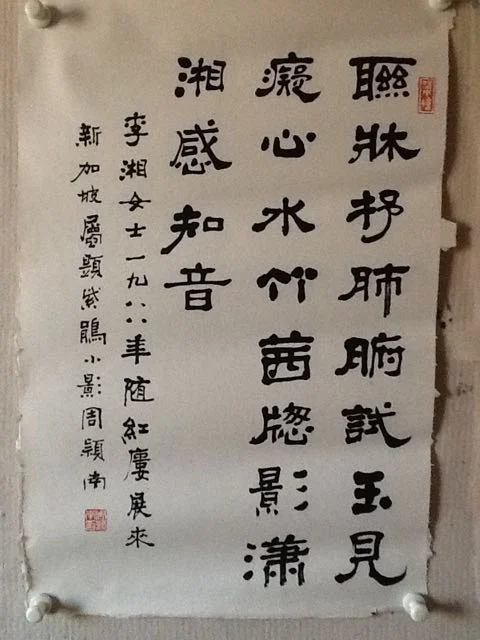 聯牀杼肺腑試玉見
癡心水竹茜牕影瀟
湘感知音
李湘女士一九八八年随紅廔展來
新加坡屬題紫鵑小影周穎南